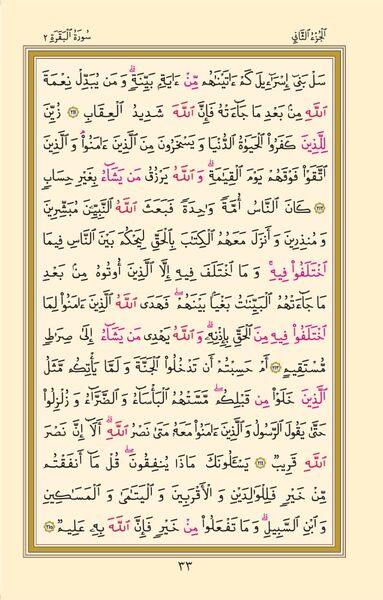 الجزء الثاني
سورة البقرة ٢
سَلْ بَنِىٓ إِسْرَٰٓءِيلَ كَمْ ءَاتَيْنَٰهُم مِّنْ ءَايَةٍۭ بَيِّنَةٍۢ ۗ وَ مَن يُبَدِّلْ نِعْمَةَ
ٱللَّهِ مِنۢ بَعْدِ مَا جَآءَتْهُ فَإِنَّ ٱللَّهَ شَدِيدُ ٱلْعِقَابِ ﴿٢١١﴾ زُيِّنَ
لِلَّذِينَ كَفَرُوا۟ ٱلْحَيَوٰةُ ٱلدُّنْيَا وَ يَسْخَرُونَ مِنَ ٱلَّذِينَ ءَامَنُوا۟ ۘ وَ ٱلَّذِينَ
ٱتَّقَوْا۟ فَوْقَهُمْ يَوْمَ ٱلْقِيَٰمَةِ ۗ وَ ٱللَّهُ يَرْزُقُ مَن يَشَآءُ بِغَيْرِ حِسَابٍۢ
﴿٢١٢﴾ كَانَ ٱلنَّاسُ أُمَّةًۭ وَٰحِدَةًۭ فَبَعَثَ ٱللَّهُ ٱلنَّبِيِّـۧنَ مُبَشِّرِينَ
وَ مُنذِرِينَ وَ أَنزَلَ مَعَهُمُ ٱلْكِتَٰبَ بِٱلْحَقِّ لِيَحْكُمَ بَيْنَ ٱلنَّاسِ فِيمَا
ٱخْتَلَفُوا۟ فِيهِ ۚ وَ مَا ٱخْتَلَفَ فِيهِ إِلَّا ٱلَّذِينَ أُوتُوهُ مِنۢ بَعْدِ
مَا جَآءَتْهُمُ ٱلْبَيِّنَٰتُ بَغْيًۢا بَيْنَهُمْ ۖ فَهَدَى ٱللَّهُ ٱلَّذِينَ ءَامَنُوا۟ لِمَا
ٱخْتَلَفُوا۟ فِيهِ مِنَ ٱلْحَقِّ بِإِذْنِهِۦ ۗ وَ ٱللَّهُ يَهْدِى مَن يَشَآءُ إِلَىٰ صِرَٰطٍۢ
مُّسْتَقِيمٍ ﴿٢١٣﴾ أَمْ حَسِبْتُمْ أَن تَدْخُلُوا۟ ٱلْجَنَّةَ وَ لَمَّا يَأْتِكُم مَّثَلُ
ٱلَّذِينَ خَلَوْا۟ مِن قَبْلِكُم ۖ مَّسَّتْهُمُ ٱلْبَأْسَآءُ وَ ٱلضَّرَّآءُ وَ زُلْزِلُوا۟
حَتَّىٰ يَقُولَ ٱلرَّسُولُ وَ ٱلَّذِينَ ءَامَنُوا۟ مَعَهُۥ مَتَىٰ نَصْرُ ٱللَّهِ ۗ أَلَآ إِنَّ نَصْرَ
ٱللَّهِ قَرِيبٌۭ ﴿٢١٤﴾ يَسْـَٔلُونَكَ مَاذَا يُنفِقُونَ ۖ قُلْ مَآ أَنفَقْتُم
مِّنْ خَيْرٍۢ فَلِلْوَٰلِدَيْنِ وَ ٱلْأَقْرَبِينَ وَ ٱلْيَتَٰمَىٰ وَ ٱلْمَسَٰكِينِ
وَ ٱبْنِ ٱلسَّبِيلِ ۗ وَ مَا تَفْعَلُوا۟ مِنْ خَيْرٍۢ فَإِنَّ ٱللَّهَ بِهِۦ عَلِيمٌۭ ﴿٢١٥﴾
٣٣